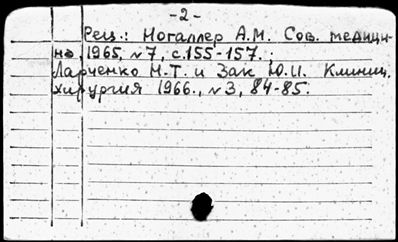 -2-
Рец.: Ногаллер А.М. Сов. медици-
на, 1965, №7, с.155-157.;
Ларченко Н.Т. и Зак Ю.И. Клинич.
хирургия 1966., №3, 84-85.